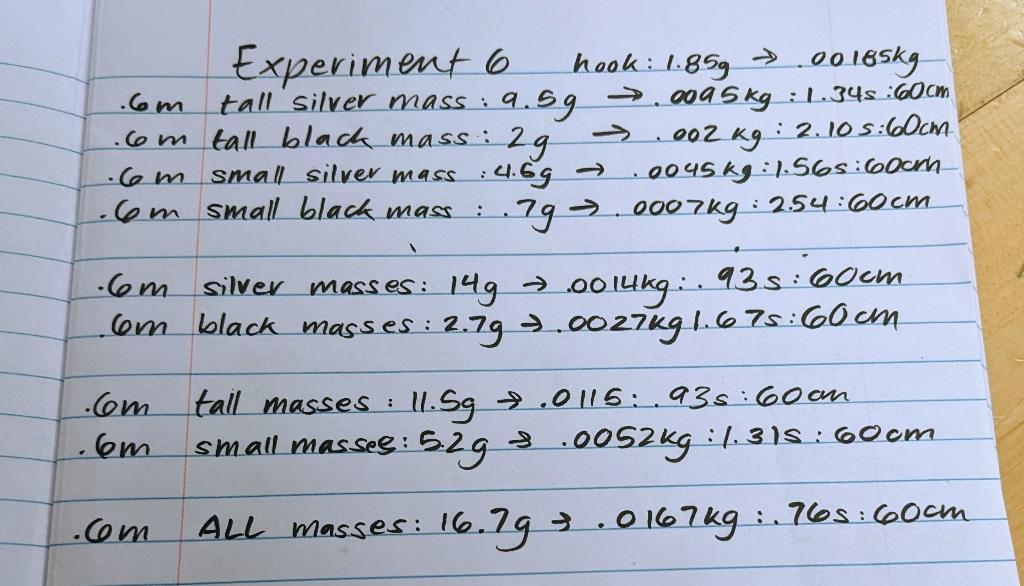 Experiment 6 hook: 1.85g → .00185kg
.6m tall silver mass: 9.5g → .0095kg : 1.34s :60cm
.6m tall black mass: 2g → .002 kg : 2.10s:60cm
.6m small silver mass :4.6g → .0045kg :1.56s:60cm
.6m small black mass : .7g → .0007kg : 2.54 :60cm
.6m silver masses: 14g → .0014kg : .93s : 60cm
.6m black masses : 2.7g → .0027kg 1.67s:60cm
.6m tall masses : 11.5g → .0115 : .93s : 60cm
.6m small masses: 5.2g → .0052kg : 1.31s : 60cm
.6m ALL masses: 16.7g → .0167kg : .76s : 60cm